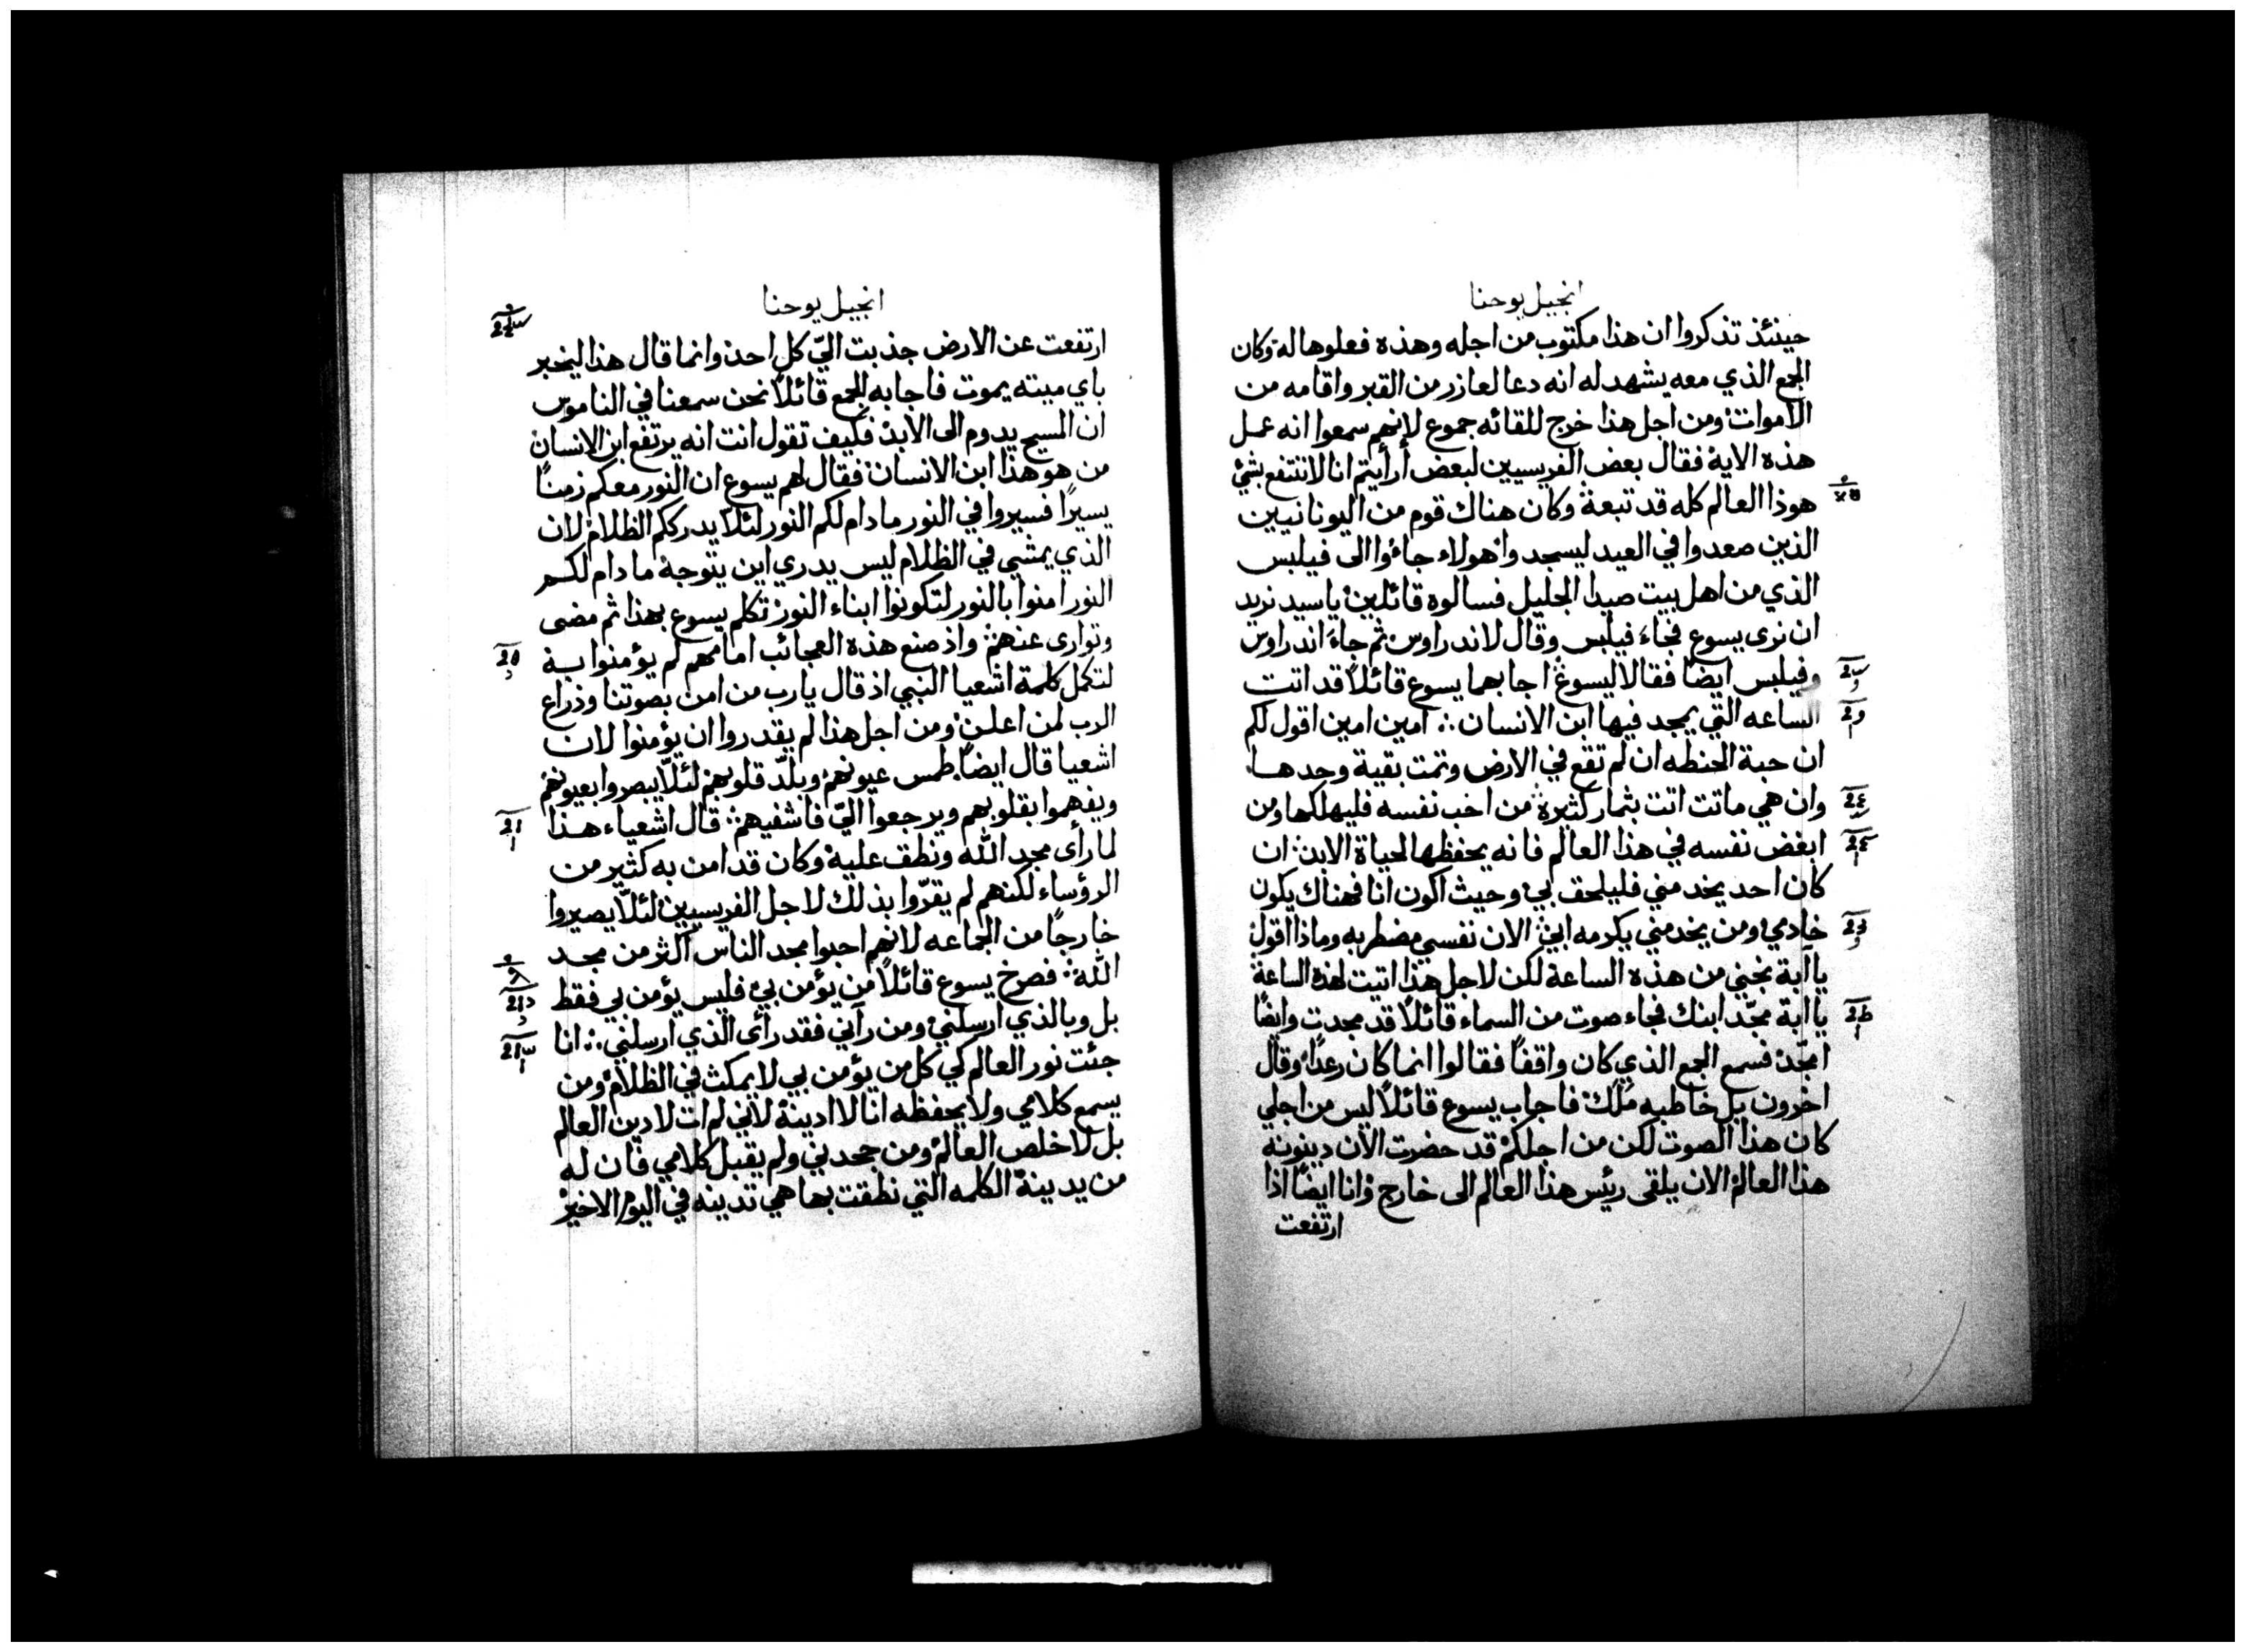 انجيل يوحنا
حينئذ تذكروا ان هذا مكتوب من اجله وهذه فعلوها له وكان
الجمع الذي معه يشهد له انه دعا لعازر من القبر واقامه من
الاموات ومن اجل هذا خرج للقائه جموع لانهم سمعوا انه عمل
هذه الاية فقال بعض الفريسيين لبعض أرأيتم انا لا ننتفع بشئ
هوذا العالم كله قد تبعة وكان هناك قوم من اليونانيين
الذين صعدوا في العيد ليسجدوا هولاء جاءوا الى فيلبس
الذي من اهل بيت صيدا الجليل فسالوه قائلين يا سيد نريد
ان نرى يسوع فجاء فيلبس وقال لاندراوس ثم جاء اندراوس
وفيلبس ايضًا فقالا ليسوع اجابهما يسوع قائلاً قد اتت
الساعه التي يمجد فيها ابن الانسان ∴ امين امين اقول لكم
ان حبة الحنطه ان لم تقع في الارض وتمت بقية وحدها
وان هي ماتت اتت بثمار كثيرة من احب نفسه فليهلكها ومن
ابغض نفسه في هذا العالم فانه يحفظها لحياة الابد ان
كان احد يخدمني فليلحق بي وحيث اكون انا فهناك يكون
خادمي ومن يخدمني يكرمه ابي الان نفسي مضطربه وماذا اقول
يا آبة نجني من هذه الساعة لكن لاجل هذا اتيت لهذه الساعة
يا آبة مجّد ابنك فجاء صوت من السماء قائلاً قد مجدت وايضًا
امجّد فسمع الجمع الذي كان واقفًا فقالوا انما كان رعدًا وقال
اخرون بل خاطبه مَلَك فاجاب يسوع قائلاً ليس من اجلي
كان هذا الصوت لكن من اجلكم قد حضرت الان دينونة
هذا العالم الان يلقى رئيس هذا العالم الى خارج وانا ايضًا اذا
ارتفعت
انجيل يوحنا
ارتفعت عن الارض جذبت اليّ كل احد وانما قال هذا ليخبر
باي ميته يموت فاجابه الجمع قائلاً نحن سمعنا في الناموس
ان المسيح يدوم الى الابد فكيف تقول انت انه يرتفع ابن الانسان
من هو هذا ابن الانسان فقال لهم يسوع ان النور معكم زمنًا
يسيرًا فسيروا في النور ما دام لكم النور لئلا يدرككم الظلام لان
الذي يمشي في الظلام ليس يدري اين يتوجه ما دام لكم
النور امنوا بالنور لتكونوا ابناء النور تكلم يسوع بهذا ثم مضى
وتوارى عنهم واذ صنع هذه العجائب امامهم لم يؤمنوا بة
لتكمل كلمة اشعيا النبي اذ قال يارب من امن بصوتنا وذراع
الرب لمن اعلن ومن اجل هذا لم يقدروا ان يؤمنوا لان
اشعيا قال ايضًا طمس عيونهم وبلّد قلوبهم لئلا يبصروا بعيونهم
ويفهموا بقلوبهم ويرجعوا اليّ فاشفيهم قال اشعياء هذا
لما رأى مجد الله ونطق علية وكان قد امن به كثير من
الرؤساء لكنهم لم يقرّوا بذلك لاجل الفريسيين لئلّا يصيروا
خارجًا من الجماعه لانهم احبوا مجد الناس اكثر من مجد
الله فصرخ يسوع قائلاً من يؤمن بي فليس يؤمن بي فقط
بل وبالذي ارسلني ومن رآني فقد رأى الذي ارسلني ∴ انا
جئت نور العالم كي كل من يؤمن بي لا يمكث في الظلام ومن
يسمع كلامي ولا يحفظه انا لا ادينة لاني لم ات لادين العالم
بل لاخلص العالم ومن جحدني ولم يقبل كلامي فان له
من يدينة الكلمه التي نطقت بها هي تدينه في اليوم الاخير